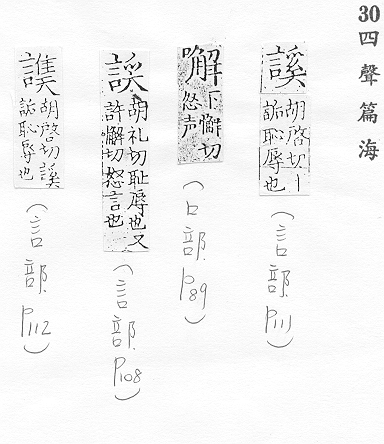 30四聲篇海
謑
胡啓切丨
詬恥辱也
(言部P111)
下懈切
怒声
(口部P89)
胡礼切耻辱也又
許懈切怒言也
(言部P108)
胡啓切謑
詬恥辱也
(言部P112)